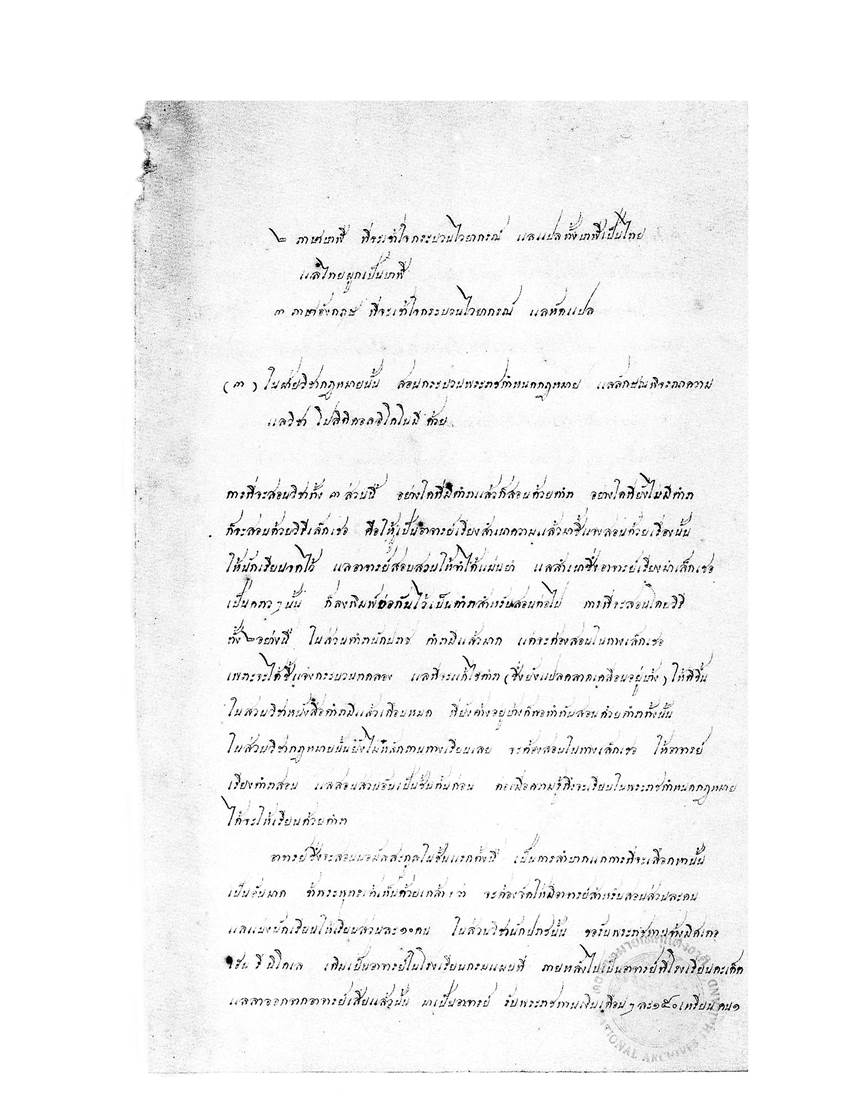 ๒ ภาษาบาฬี ที่จะเข้าใจกระบวนไวยากรณ์ แลแปลทั้งบาฬีเป็นไทย
แลไทยผูกเป็นบาฬี
๓ ภาษาอังกฤษ ที่จะเข้าใจกระบวนไวยากรณ์ แลหัดแปล
(๓) ในฝ่ายวิชากฎหมายนั้น สอนกระบวนพระราชกำหนดกฎหมาย แลลักษณพิจารณาความ
แลวิชา โปลิติคอลอิโคโนมี ด้วย
การที่จะสอนวิชาทั้ง ๓ ส่วนนี้ อย่างใดที่มีตำราแล้วก็สอนด้วยตำรา อย่างใดที่ยังไม่มีตำรา
ก็จะสอนด้วยวิธีเล็กเชอ คือให้ผู้เป็นอาจารย์เรียงสำเนาความแล้วมาชี้แจงสอนด้วยเรื่องนั้น
ให้นักเรียนจดไว้ แลอาจารย์สอบสวนให้จำได้แม่นยำ แลสำเนาซึ่งอาจารย์เรียงมาเล็กเชอ
เป็นคราวๆ นั้น ก็ลงพิมพ์ต่อกันไว้เป็นตำราสำหรับสอนต่อไป การที่จะสอนโดยวิธี
ทั้ง ๒ อย่างนี้ ในส่วนตำรานักปราช ตำรามีแล้วมาก แต่จะต้องสอนในทางเล็กเชอ
เพราะจะได้ชี้แจงกระบวนทดลอง แลที่จะแก้ไขตำรา (ซึ่งยังแปลคลาดเคลื่อนอยู่บ้าง) ให้ดีขึ้น
ในส่วนวิชาหนังสือตำรามีแล้วเกือบหมด ที่ยังค้างอยู่บ้างก็พอทำทันสอนด้วยตำราทั้งนั้น
ในส่วนวิชากฎหมายนั้นยังไม่มีหลักฐานทางเรียนเลย จะต้องสอนในทางเล็กเชอ ให้อาจารย์
เรียงตำราสอน แลสอนส่วนอันเป็นชั้นต้นก่อน ต่อเมื่อความรู้ถึงจะเรียนในพระราชกำหนดกฎหมาย
ได้จะให้เรียนด้วยตำรา
อาจารย์ซึ่งจะสอนนอมัลสะกูลในชั้นแรกตั้งนี้ เป็นการลำบากแก่การที่จะเลือกหานั้น
เป็นอันมาก ข้าพระพุทธเจ้าเห็นด้วยเกล้าฯ ว่า จะต้องจัดให้มีอาจารย์สำหรับสอนส่วนละคน
แลแบ่งนักเรียนให้เรียนส่วนละ ๑๐ คน ในส่วนวิชานักปราชนั้น ขอรับพระราชทานจ้างมิสเตอ
เดิมเป็นอาจารย์ในโรงเรียนกรมแผนที่ ภายหลังไปเป็นอาจารย์ที่โรงเรียนคะเด็ต
แลลาออกจากอาจารย์เสียแล้วนั้น มาเป็นอาจารย์ รับพระราชทานเงินเดือนๆ ละ ๑๕๐ เหรียน คน ๑
NATIONAL ARCHIVES THAILAND